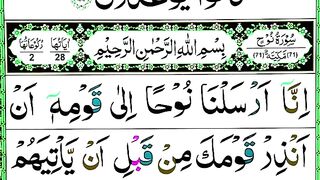 سُوْرَةُ نُوْحٍ
بِسْمِ اللّٰهِ الرَّحْمٰنِ الرَّحِيْمِ
اٰيَاتُهَا 28 رُكُوْعَاتُهَا 2
اِنَّاۤ اَرْسَلْنَا نُوْحًا اِلٰى قَوْمِهٖۤ اَنْ
اَنْذِرْ قَوْمَكَ مِنْ قَبْلِ اَنْ يَّاْتِيَهُمْ